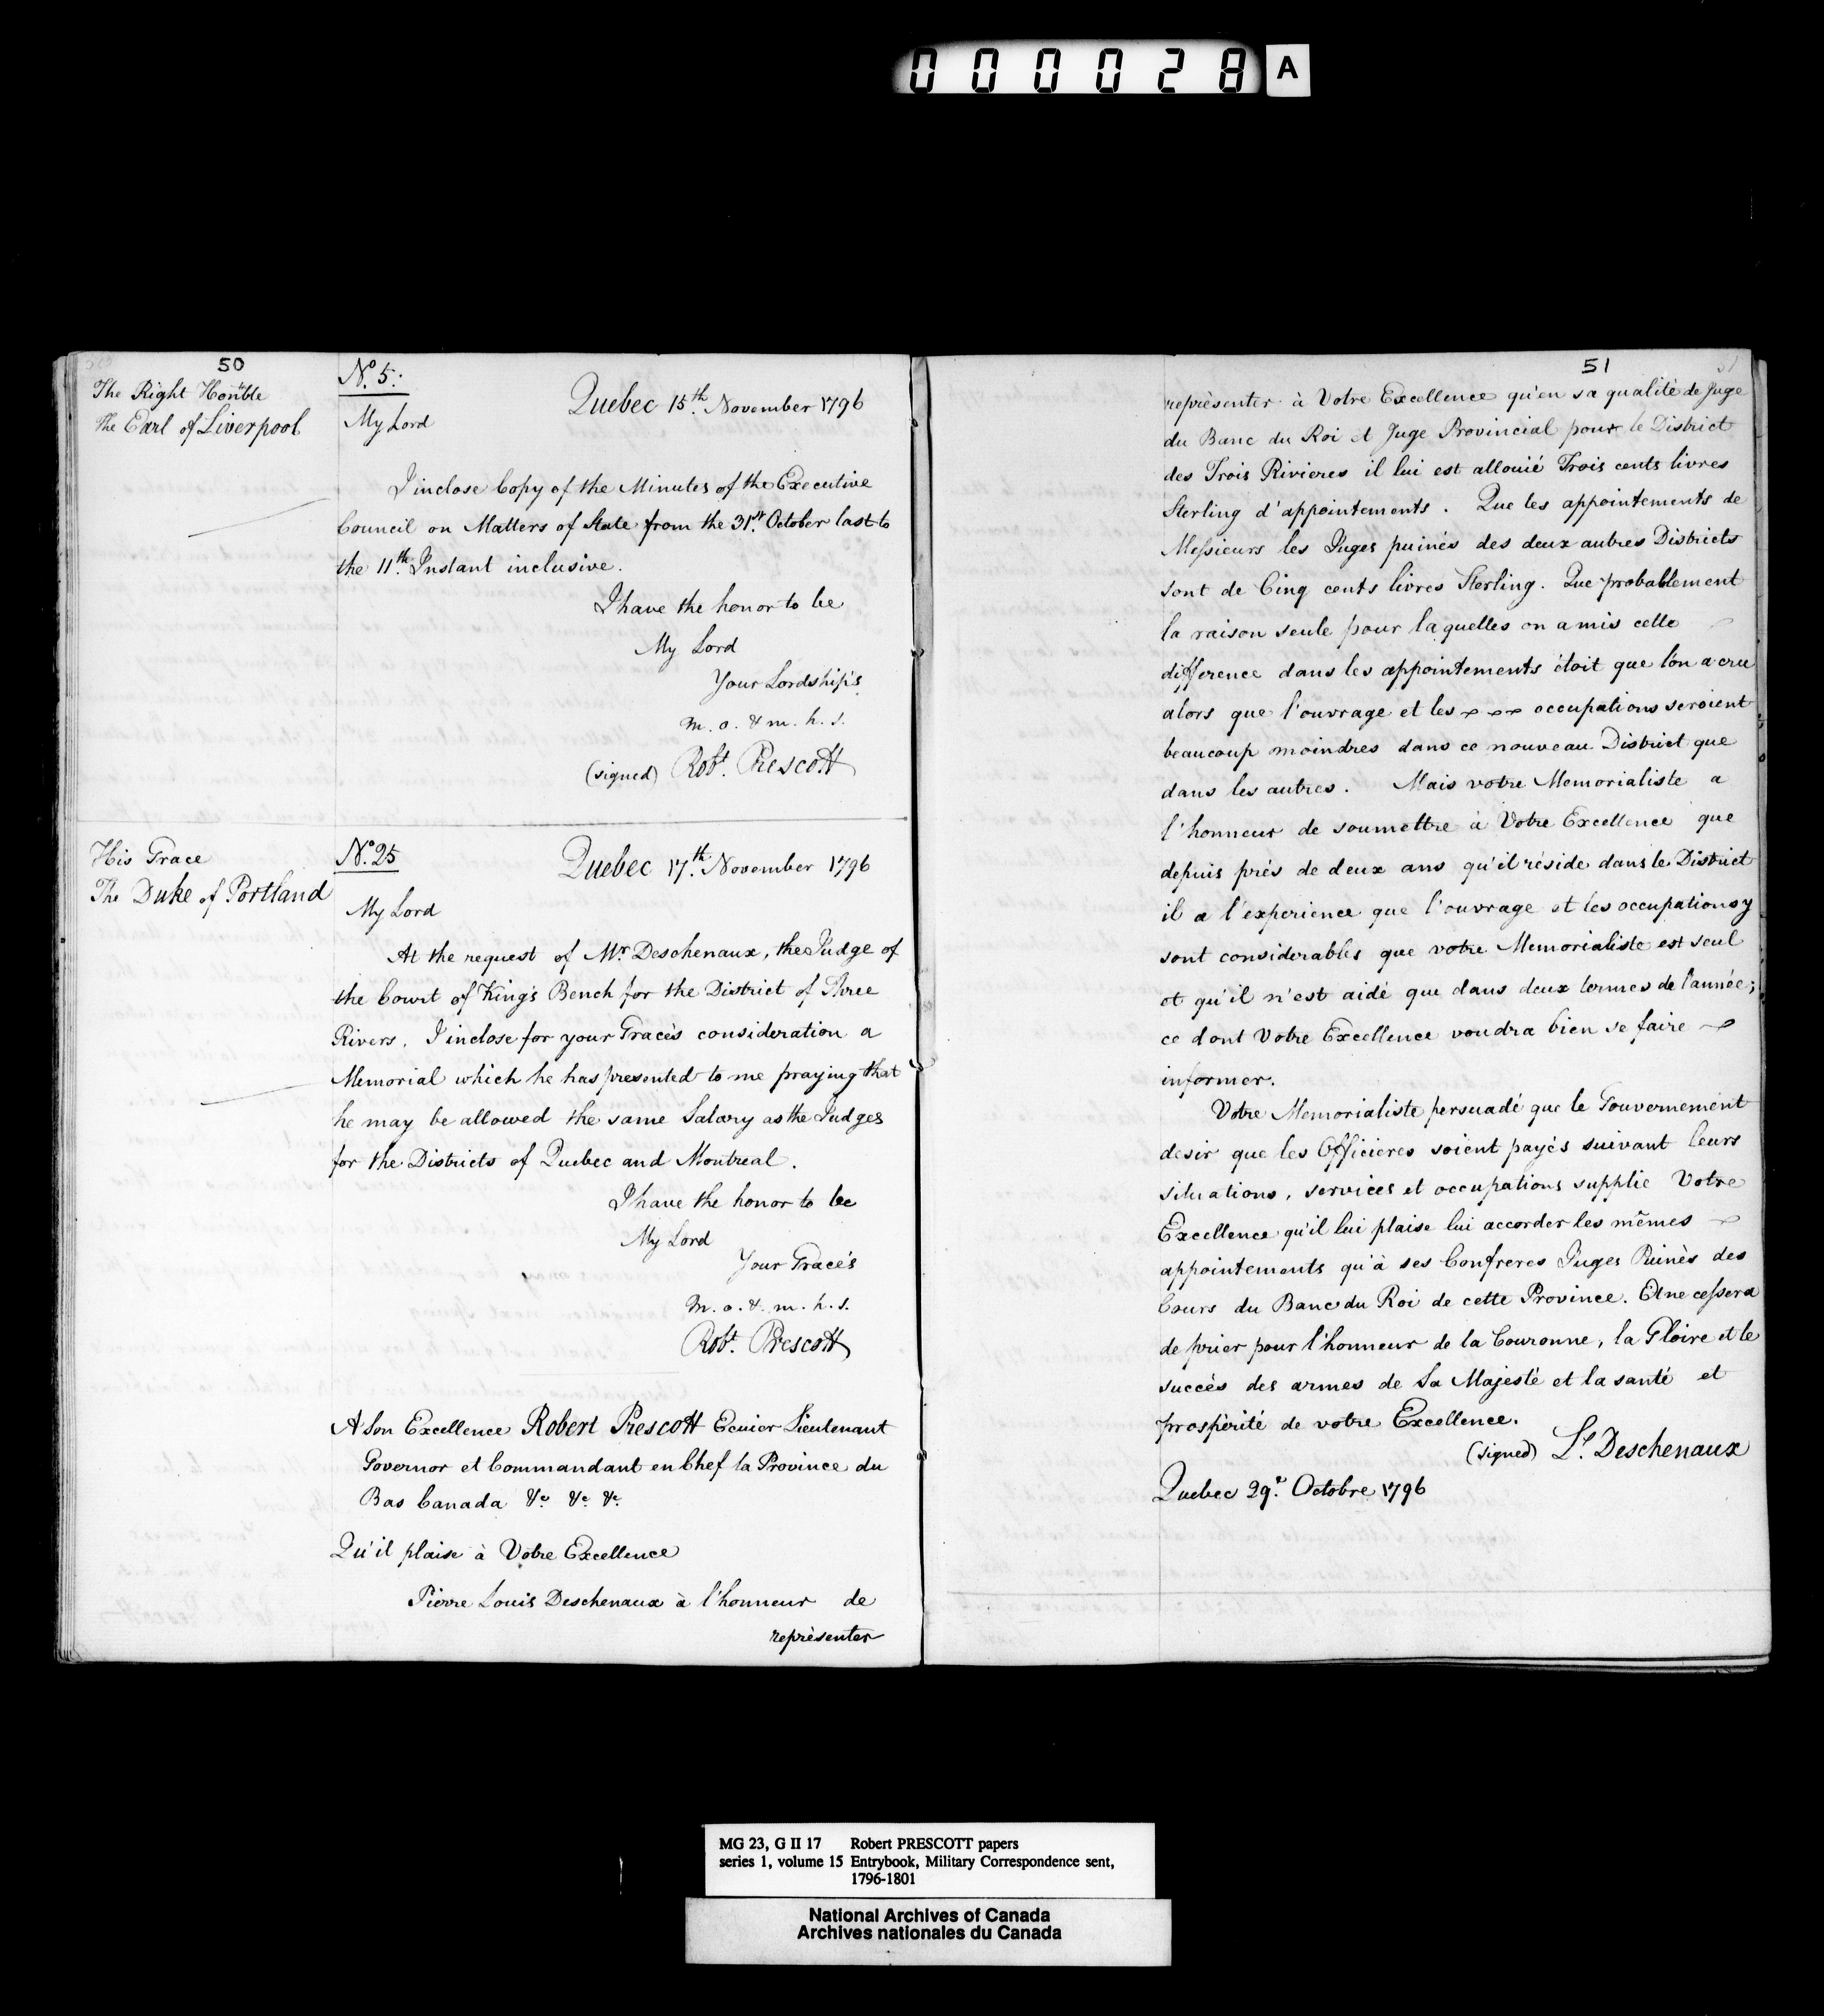 000028 A
50
The Right Honble
The Earl of Liverpool
No. 5:
Quebec 15th. November 1796
My Lord
I inclose Copy of the Minutes of the Executive
Council on Matters of State from the 31st. October last to
the 11th. Instant inclusive.
I have the honor to be
My Lord
Your Lordship's
m. o. & m. h. s.
(signed) Robt. Prescott
His Grace
The Duke of Portland
No. 25
Quebec 17th. November 1796
My Lord
At the request of Mr Deschenaux, the Judge of
the Court of King's Bench for the District of Three
Rivers, I inclose for your Grace's consideration a
Memorial which he has presented to me praying that
he may be allowed the same Salary as the Judges
for the Districts of Quebec and Montreal.
I have the honor to be
My Lord
Your Grace's
m. o. &. m. h. s.
Robt. Prescott
A Son Excellence Robert Prescott Ecuier Lieutenant
Governor et Commandant en Chef la Province du
Bas Canada &c &c &c
Qu'il plaise à Votre Excellence
Pierre Louis Deschenaux à l'honneur de
représenter
51
représenter à Votre Excellence qu'en sa qualité de Juge
du Banc du Roi et Juge Provincial pour le District
des Trois Rivieres il lui est allouié Trois cents livres
Sterling d'appointements. Que les appointements de
Messieurs les Juges puinés des deux autres Districts
sont de Cinq cents livres Sterling. Que probablement
la raison seule pour laquelles on a mis celle
difference dans les appointements étoit que l'on a cru
alors que l'ouvrage et les occupations seroient
beaucoup moindres dans ce nouveau District que
dans les autres. Mais votre Memorialiste a
l'honneur de soumettre à Votre Excellence que
depuis près de deux ans qu'il réside dans le District
il a l'experience que l'ouvrage et les occupations y
sont considerables que votre Memorialiste est seul
et qu'il n'est aidé que dans deux termes de l'année;
ce dont Votre Excellence voudra bien se faire
informer.
Votre Memorialiste persuadé que le Gouvernement
desir que les Officieres soient payés suivant leurs
situations, services et occupations supplie Votre
Excellence qu'il lui plaise lui accorder les mêmes
appointements qu'à ses Confreres Juges Puinés des
Cours du Banc du Roi de cette Province. Et ne cessera
de prier pour l'honneur de la Couronne, la Gloire et le
succès des armes de Sa Majesté et la santé et
prospérité de votre Excellence.
(signed) Ls. Deschenaux
Quebec 29e. Octobre 1796
MG 23, G II 17 Robert PRESCOTT papers
series 1, volume 15 Entrybook, Military Correspondence sent,
1796-1801
National Archives of Canada
Archives nationales du Canada